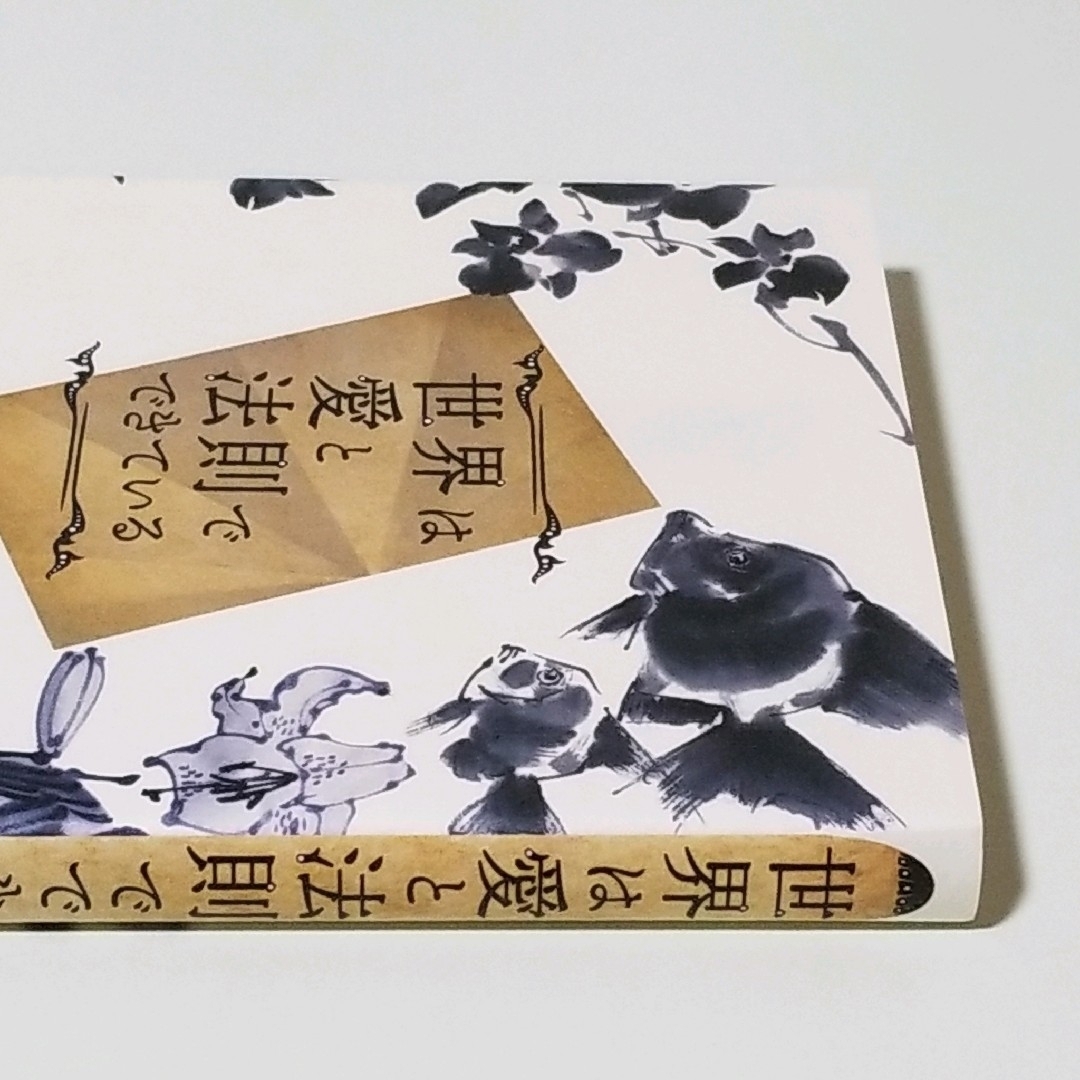 世界は
愛と
法則で
できている
世界は愛と法則でで